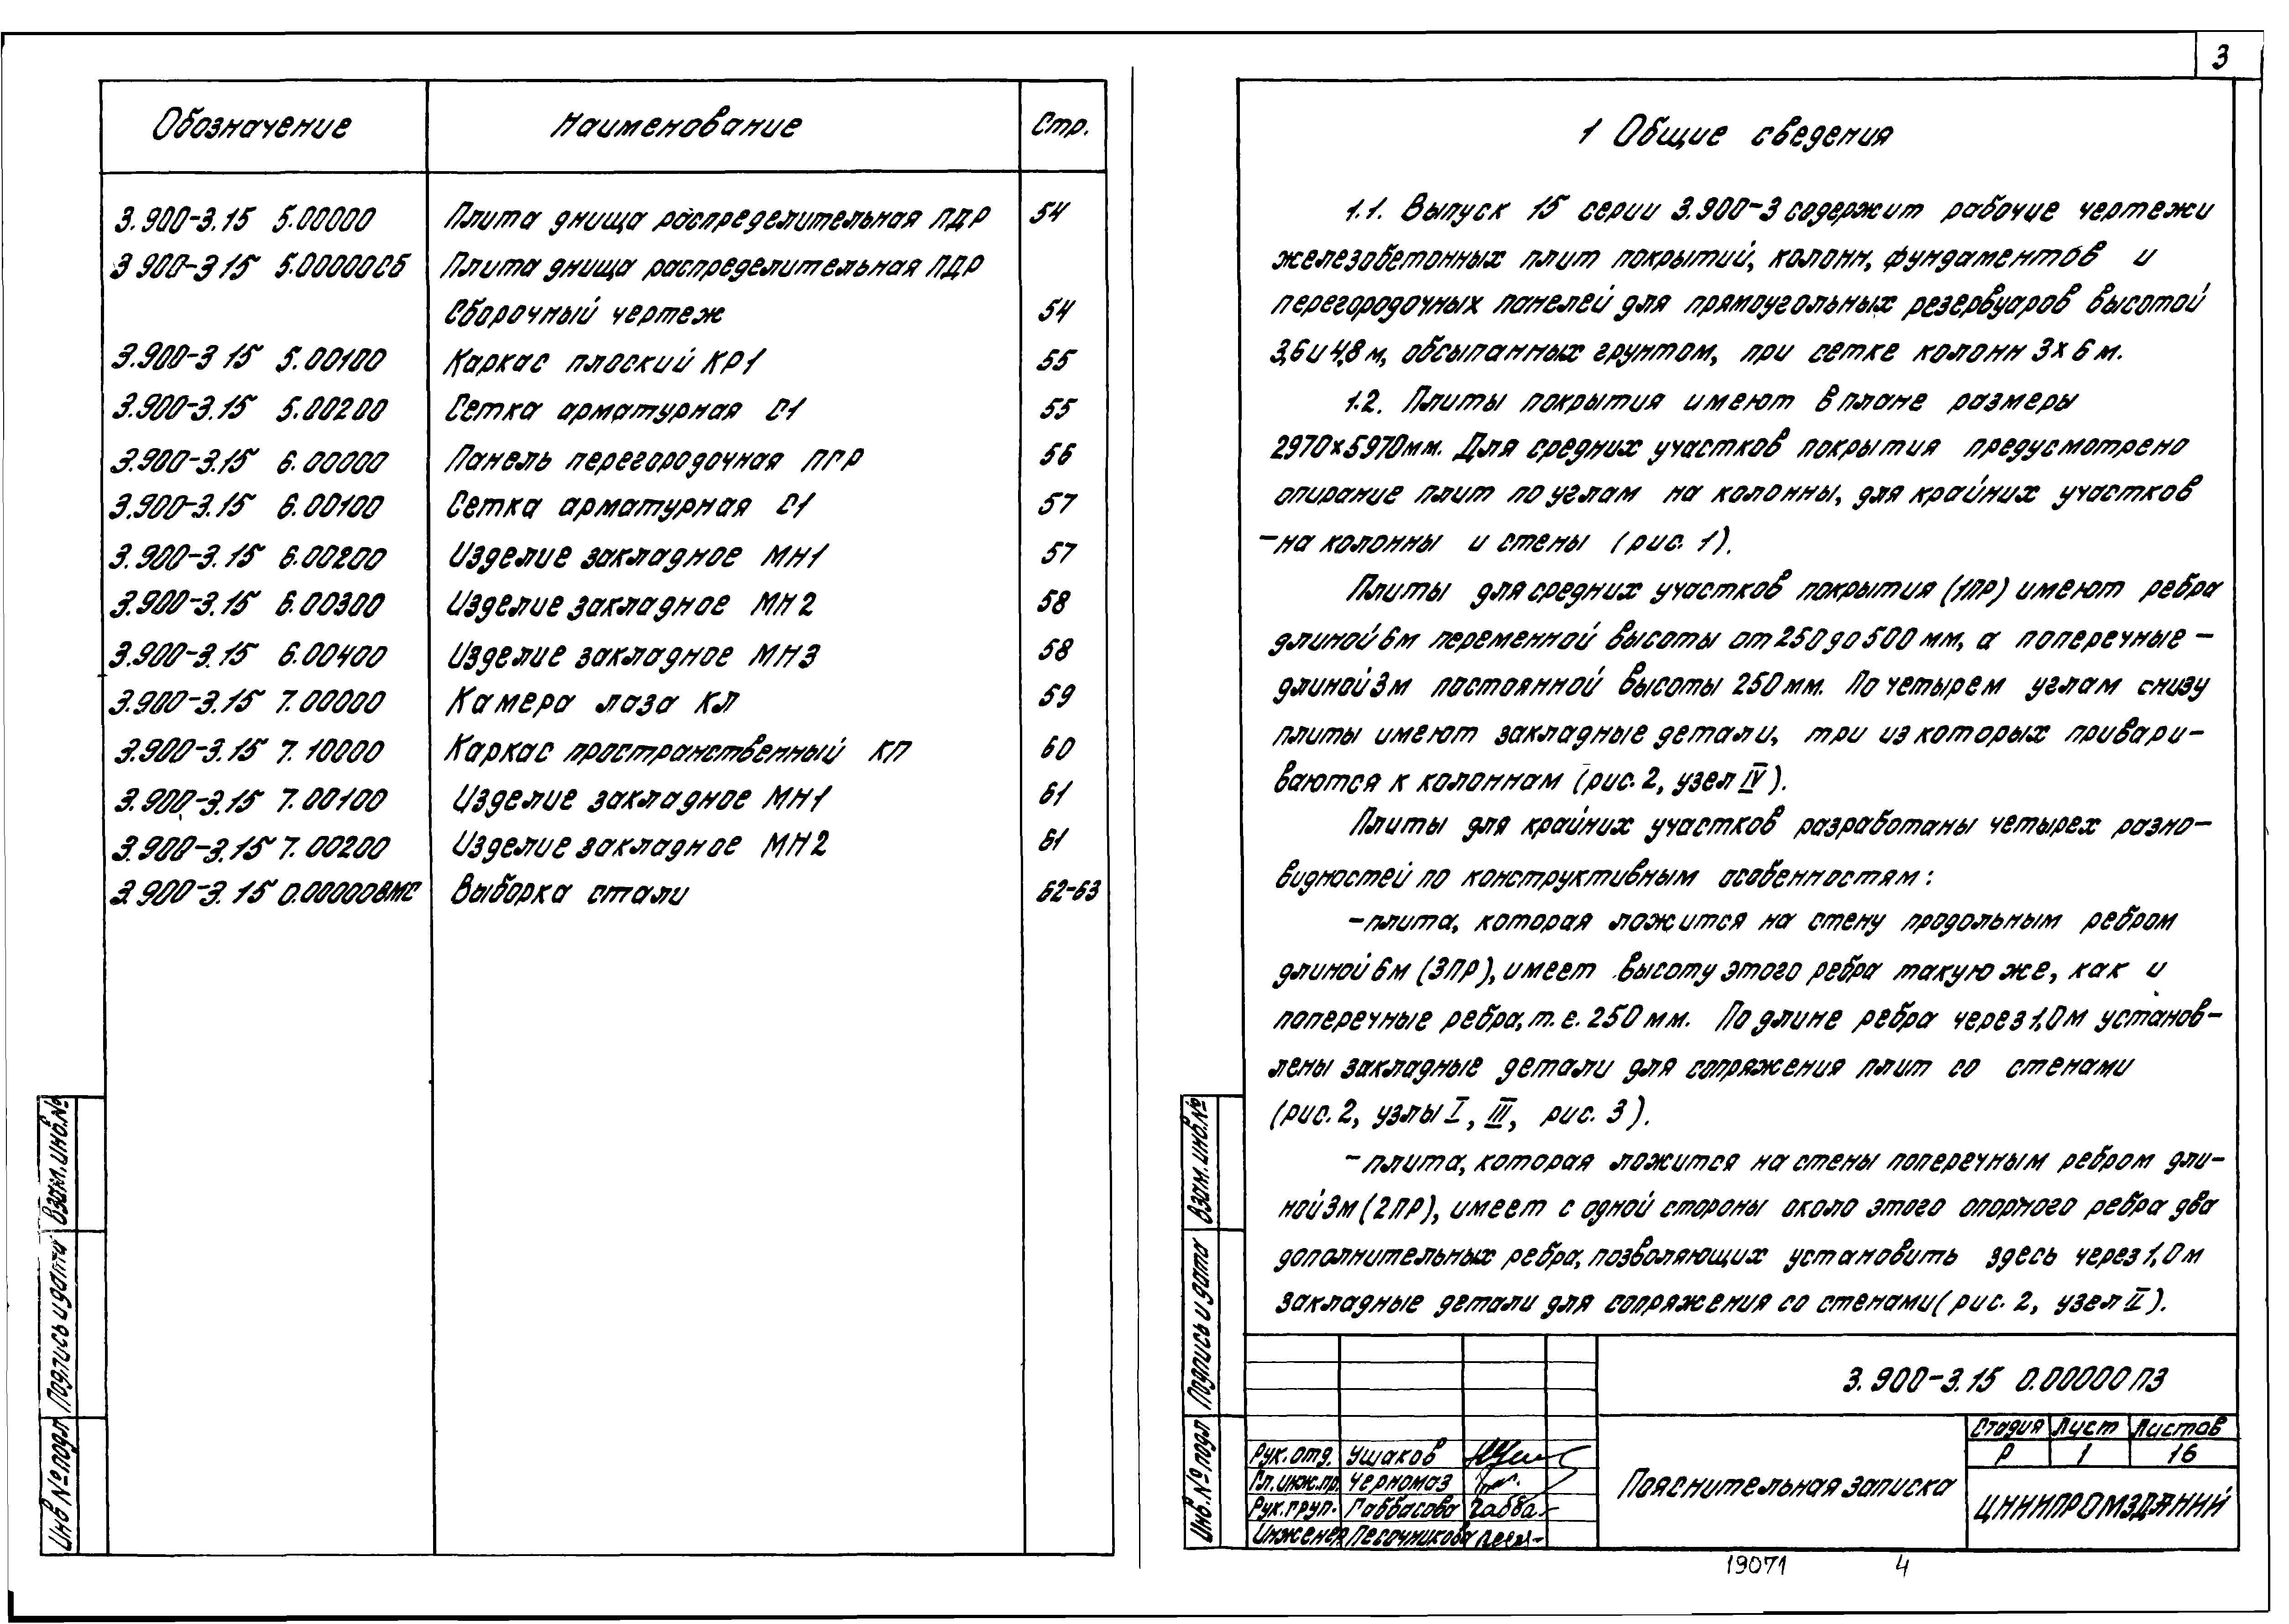 3
Обозначение Наименование Стр.
3.900-3.15 5.00000 Плита днища распределительная ПДР 54
3 900-3 15 5.00000СБ Плита днища распределительная ПДР
Сборочный чертеж 54
3.900-3 15 5.00100 Каркас плоский КР1 55
3.900-3.15 5.00200 Сетка арматурная С1 55
3.900-3.15 6.00000 Панель перегородочная ПГР 56
3.900-3.15 6.00100 Сетка арматурная С1 57
3.900-3.15 6.00200 Изделие закладное МН1 57
3.900-3.15 6.00300 Изделие закладное МН2 58
3.900-3.15 6.00400 Изделие закладное МН3 58
3.900-3.15 7.00000 Камера лаза КЛ 59
3.900-3.15 7.10000 Каркас пространственный КП 60
3.900-3.15 7.00100 Изделие закладное МН1 61
3.900-3.15 7.00200 Изделие закладное МН2 61
3.900-3.15 0.00000ВМС Выборка стали 62-63
Взам.инв.№
Подпись и дата
Инв №подл
1 Общие сведения
1.1. Выпуск 15 серии 3.900-3 содержит рабочие чертежи
железобетонных плит покрытий, колонн, фундаментов и
перегородочных панелей для прямоугольных резервуаров высотой
3,6 и 4,8 м, обсыпанных грунтом, при сетке колонн 3х6 м.
1.2. Плиты покрытия имеют в плане размеры
2970х5970мм. Для средних участков покрытия предусмотрено
опирание плит по углам на колонны, для крайних участков
-на колонны и стены (рис. 1).
Плиты для средних участков покрытия (1ПР) имеют ребра
длиной 6м переменной высоты от 250 до 500 мм, а поперечные -
длиной 3м постоянной высоты 250 мм. По четырем углам снизу
плиты имеют закладные детали, три из которых привари-
ваются к колоннам (рис. 2, узел IV).
Плиты для крайних участков разработаны четырех разно-
видностей по конструктивным особенностям:
-плита, которая ложится на стену продольным ребром
длиной 6м (3ПР), имеет высоту этого ребра такую же, как и
поперечные ребра, т.е. 250 мм. По длине ребра через 1,0м установ-
лены закладные детали для сопряжения плит со стенами
(рис. 2, узлы I, III, рис. 3).
-плита, которая ложится на стены поперечным ребром дли-
ной 3м (2ПР), имеет с одной стороны около этого опорного ребра два
дополнительных ребра, позволяющих установить здесь через 1,0м
закладные детали для сопряжения со стенами (рис. 2, узел II).
Взам.инв.№
Подпись и дата
Инв.№подл
3.900-3.15 0.00000ПЗ
Рук.отд. Ушаков
Гл.инж.пр. Черномаз
Рук.груп. Габбасова Габба
Инженер Песочникова
Пояснительная записка
Стадия Лист Листов
Р 1 16
ЦНИИПРОМЗДАНИЙ
19071 4